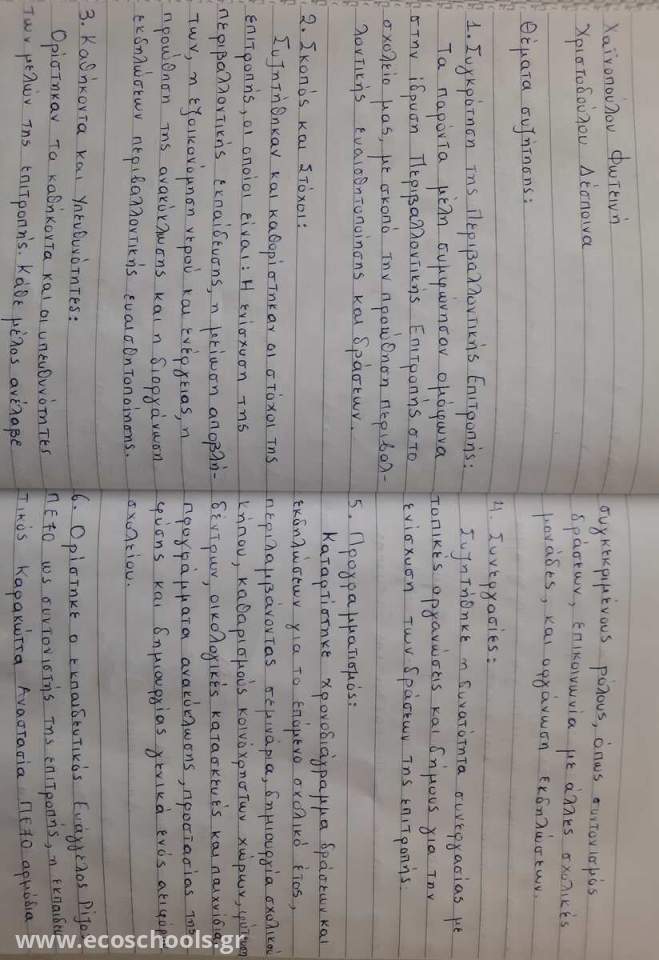 Χαϊνοπούλου Φωτεινή
Χριστοδούλου Δέσποινα
Θέματα συζήτησης:
1. Συγκρότηση της Περιβαλλοντικής Επιτροπής:
Τα παρόντα μέλη συμφώνησαν ομόφωνα
στην ίδρυση Περιβαλλοντικής Επιτροπής στο
σχολείο μας, με σκοπό την προώθηση περιβαλ-
λοντικής ευαισθητοποίησης και δράσεων.
2. Σκοπός και Στόχοι:
Συζητήθηκαν και καθορίστηκαν οι στόχοι της
επιτροπής, οι οποίοι είναι: Η ενίσχυση της
περιβαλλοντικής εκπαίδευσης, η μείωση αποβλή-
των, η εξοικονόμηση νερού και ενέργειας, η
προώθηση της ανακύκλωσης και η διοργάνωση
εκδηλώσεων περιβαλλοντικής ευαισθητοποίησης.
3. Καθήκοντα και Υπευθυνότητες:
Ορίστηκαν τα καθήκοντα και οι υπευθυνότητες
των μελών της επιτροπής. Κάθε μέλος ανέλαβε
συγκεκριμένους ρόλους, όπως συντονισμός
δράσεων, επικοινωνία με άλλες σχολικές
μονάδες, και οργάνωση εκδηλώσεων.
4. Συνεργασίες:
Συζητήθηκε η δυνατότητα συνεργασίας με
τοπικές οργανώσεις και δήμους για την
ενίσχυση των δράσεων της επιτροπής.
5. Προγραμματισμός:
Καταρτίστηκε χρονοδιάγραμμα δράσεων και
εκδηλώσεων για το επόμενο σχολικό έτος,
περιλαμβάνοντας σεμινάρια, δημιουργία σχολικού
κήπου, καθαρισμούς κοινόχρηστων χώρων, φύτευση
δέντρων, οικολογικές κατασκευές και παιχνίδια,
προγράμματα ανακύκλωσης, προστασίας της
φύσης και δημιουργίας γενικά ενός αειφόρου
σχολείου.
6. Ορίστηκε ο εκπαιδευτικός Ευάγγελος Ρίζος
ΠΕ70 ως συντονιστής της επιτροπής, η εκπαιδευ-
τικός Καρακώττα Αναστασία ΠΕ70 αρμόδια
www.ecoschools.gr